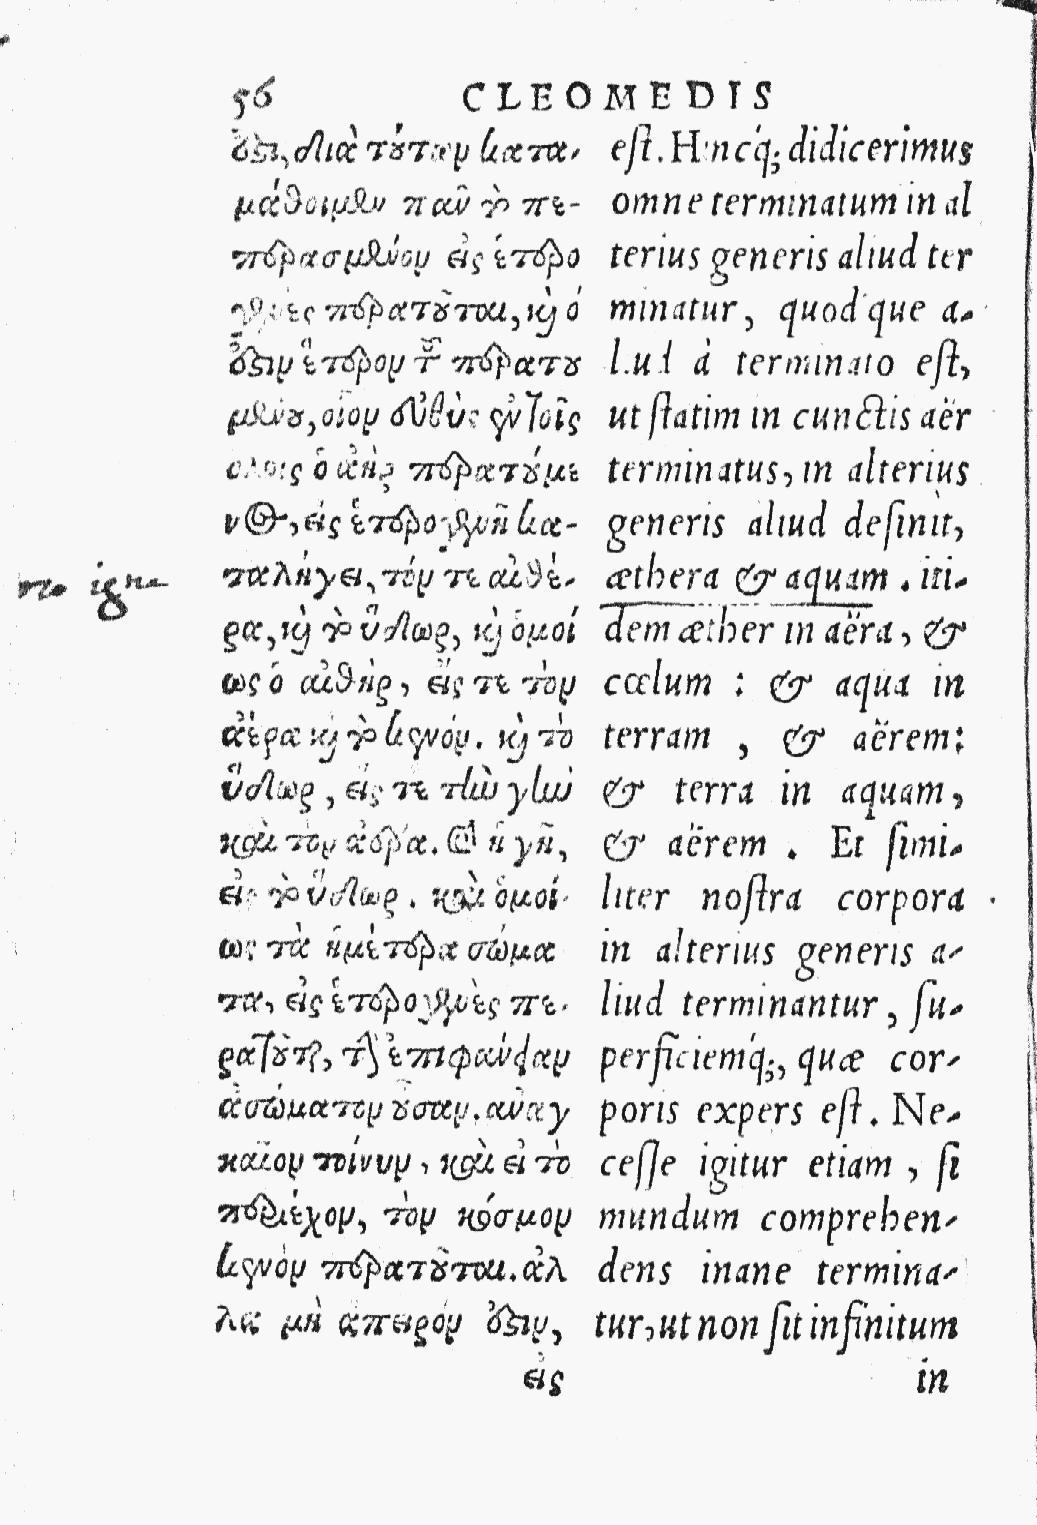 56 CLEOMEDIS
ὅζι, διὰ τούτων κατα-
μάθοιμεν πᾶν τὸ πε-
περασμένον εἰς ἑτερο
γενὲς περατοῦται, καὶ ὅ
ὅζιν ἕτερον τοῦ περατου
μένου, οἷον εὐθὺς ἐν τοῖς
ὅλοις ὁ ἀὴρ περατούμε
νος, εἰς ἑτερογενῆ κα-
ταλήγει, τόν τε αἰθέ-
ρα, καὶ τὸ ὕδωρ, καὶ ὁμοί
ως ὁ αἰθὴρ, εἴς τε τὸν
ἀέρα καὶ τὸ κενόν. καὶ τὸ
ὕδωρ, εἴς τε τὴν γῆν
καὶ τὸν ἀέρα. καὶ ἡ γῆ,
εἰς τὸ ὕδωρ. καὶ ὁμοί-
ως τὰ ἡμέτερα σώμα
τα, εἰς ἑτερογενὲς πε-
ρατοῦται, τὴν ἐπιφάνειαν
ἀσώματον οὖσαν. ἀναγ
καῖον τοίνυν, καὶ εἰ τὸ
περιέχον, τὸν κόσμον
κενὸν περατοῦται. ἀλ
λὰ μὴ ἄπειρόν ὅζιν,
εἰς
est. Hincq́; didicerimus
omne terminatum in al
terius generis aliud ter
minatur, quod que a-
liud à terminato est,
ut statim in cunctis aër
terminatus, in alterius
generis aliud desinit,
æthera & aquam. iti-
dem æther in aëra, &
cœlum : & aqua in
terram , & aërem:
& terra in aquam,
& aërem . Et simi-
liter nostra corpora
in alterius generis a-
liud terminantur, su-
perficiemq́;, quæ cor-
poris expers est. Ne-
cesse igitur etiam, si
mundum comprehen-
dens inane termina-
tur, ut non sit infinitum
in